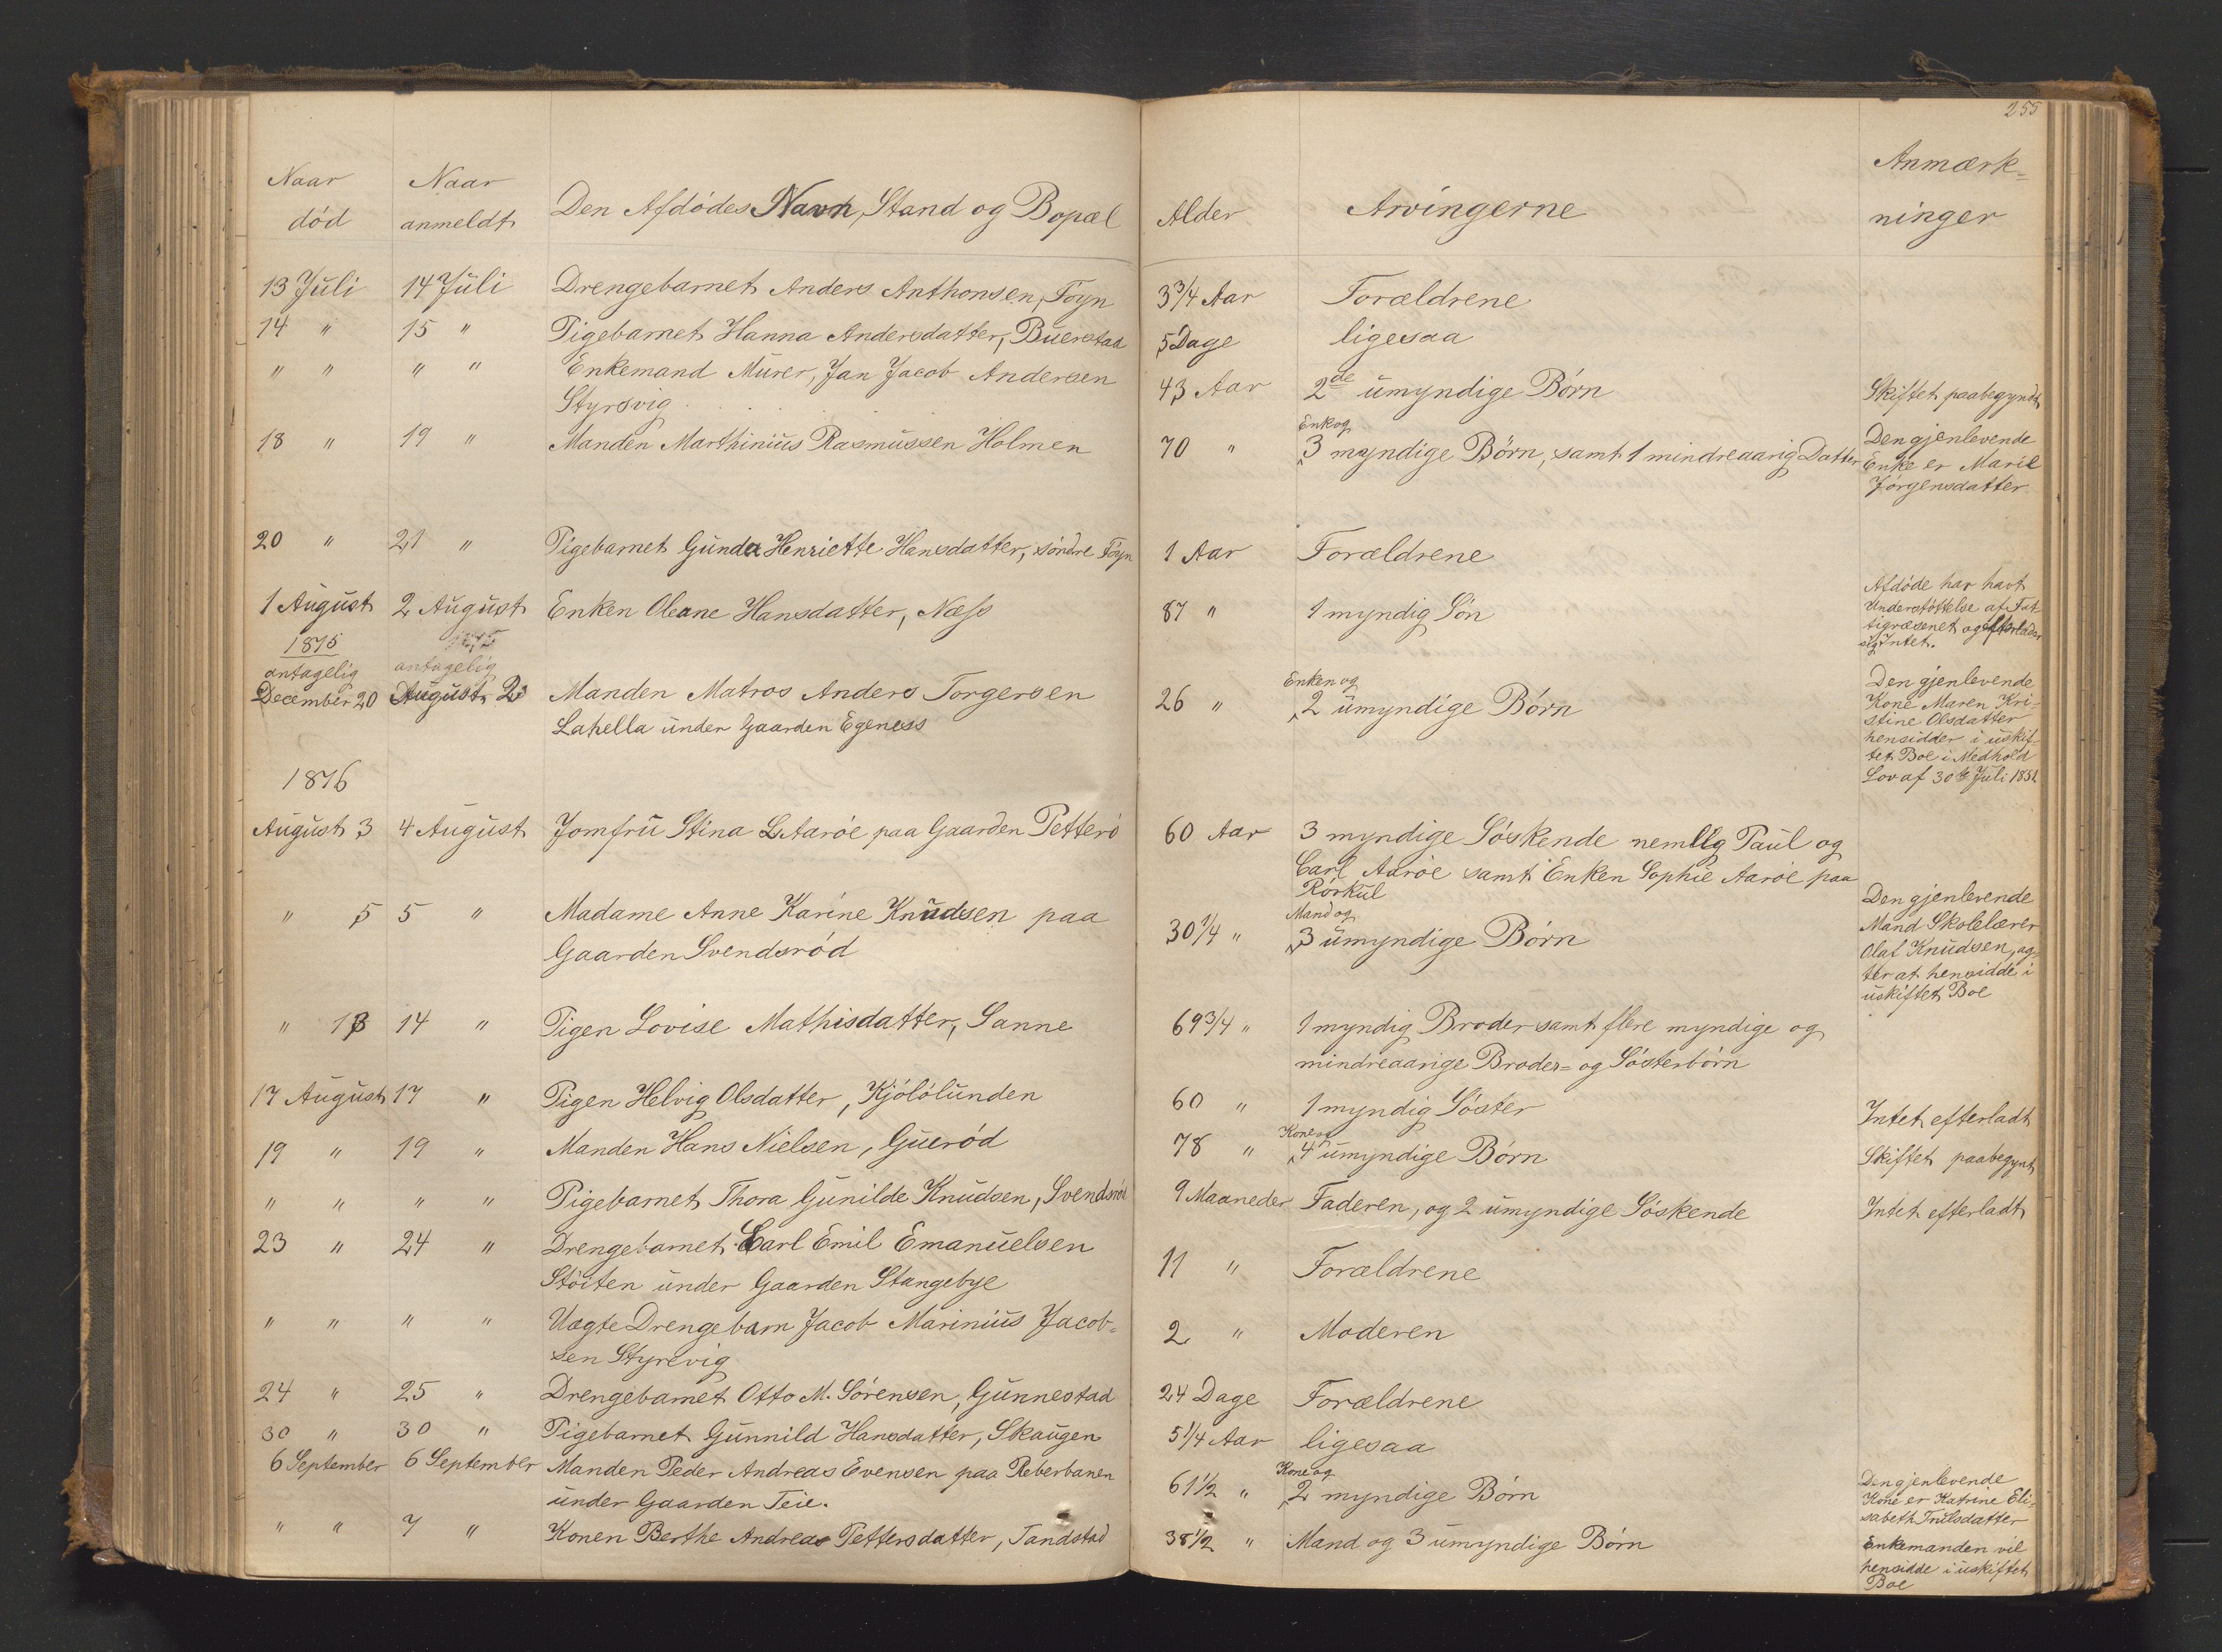 255
Naar død
Naar anmeldt
Den Afdødes Navn, Stand og Bopæl
Alder
Arvingerne
Anmærk-
ninger
13 Juli 14 Juli Drengebarnet Anders Anthonsen, Føyn 3 3/4 Aar Forældrene
14 " 15 " Pigebarnet Hanna Andersdatter, Buerstad 5 Dage ligesaa
" " " " Enkemand Murer, Jan Jacob Andersen 43 Aar 2de umyndige Børn Skiftet paabegyndt
Styrsvig
18 " 19 " Manden Marthinius Rasmussen Holmen 70 " Enk og 3 myndige Børn, samt 1 mindreaarig Datter Den gjenlevende
Enke er Marie
Jørgensdatter
20 " 21 " Pigebarnet Gunda Henriette Hansdatter, søndre Føyn 1 Aar Forældrene
1 August 2 August Enken Oleane Hansdatter, Næss 87 " 1 myndig Søn Afdøde har havt
Understøttelse af Fat
tigvæsenet og efterlader
sig Intet.
1875 1875
antagelig antagelig
December 20 August 23 Manden Matros Anders Torgersen 26 " Enken og 2 umyndige Børn Den gjenlevende
Lahella under Gaarden Egeness Kone Maren Kri-
stine Olsdatter
hensidder i uskif-
tet Boe i Medhold
Lov af 30te Juli 1851
1876
August 3 4 August Jomfru Stina L. Aarøe paa Gaarden Petterø 60 Aar 3 myndige Søskende nemlig Paul og
Carl Aarøe samt Enken Sophie Aarøe paa
Rørkul
" 5 5 " Madame Anne Karine Knudsen paa 30 1/4 " Mand og 3 umyndige Børn Den gjenlevende
Gaarden Svendsrød Mand Skolelærer
Olaf Knudsen, ag-
ter at hensidde i
uskiftet Boe
" 13 14 " Pigen Lovise Mathisdatter, Sanne 69 3/4 " 1 myndig Broder samt flere myndige og
mindreaarige Broder= og Søsterbørn
17 August 17 " Pigen Helvig Olsdatter, Kjølølunden 60 " 1 myndig Søster Intet efterladt
19 " 19 " Manden Hans Nielsen, Guerød 78 " Kone og 4 umyndige Børn Skiftet paabegynt
" " " " Pigebarnet Thora Gunilde Knudsen, Svendsrød 9 Maaneder Faderen, og 2 umyndige Søskende Intet efterladt
23 " 24 " Drengebarnet Carl Emil Emanuelsen 11 " Forældrene
Støiten under Gaarden Stangebye
" " " " Uægte Drengebarn Jacob Marinius Jacob- 2 " Moderen
sen Styrsvig
24 " 25 " Drengebarnet Otto M. Sørensen, Gunnestad 24 Dage Forældrene
30 " 30 " Pigebarnet Gunnild Hansdatter, Skaugen 5 1/4 Aar ligesaa
6 September 6 September Manden Peder Andreas Evensen paa Reberbanen 61 1/2 " Kone og 2 myndige Børn Den gjenlevende
under Gaarden Teie. Kone er Katrine Eli-
sabeth Trulsdatter
" " 7 " Konen Berthe Andreas Pettersdatter, Tandstad 38 1/2 " Mand og 3 umyndige Børn Enkemanden vil
hensidde i uskiftet
Boe